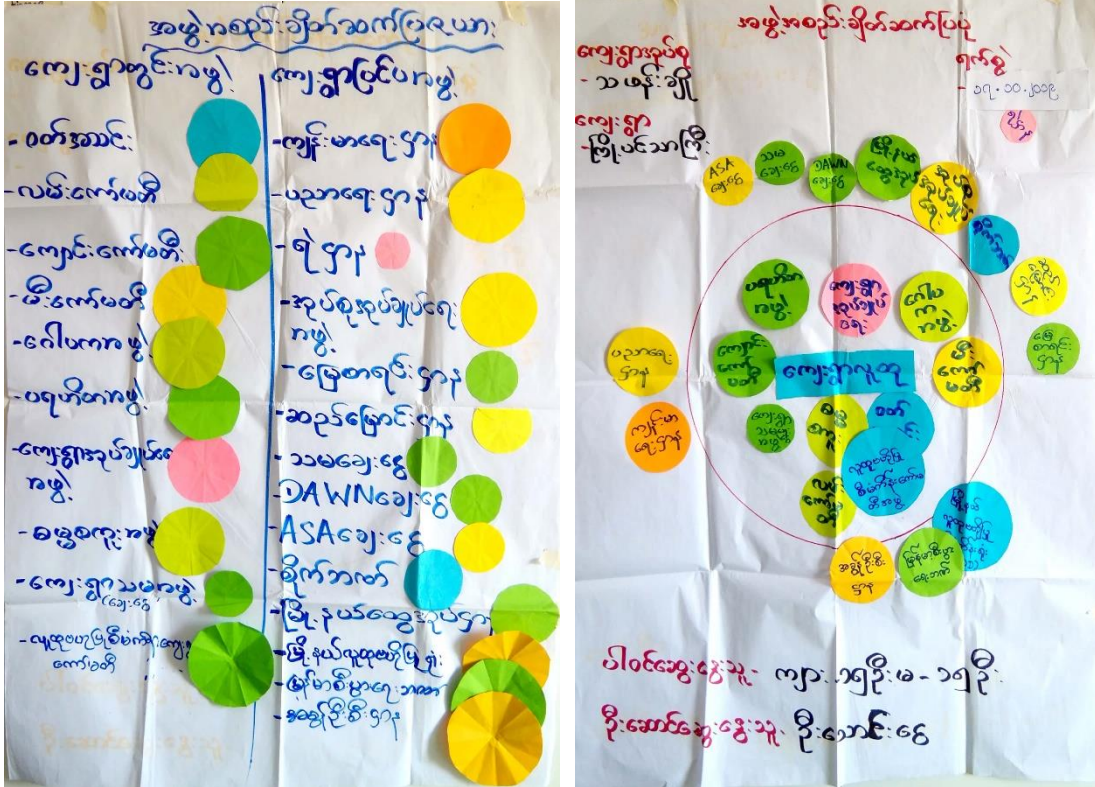 အဖွဲ့အစည်းချိတ်ဆက်ပြဇယား
ကျေးရွာတွင်းအဖွဲ့
- ဝတ်အသင်း
- လမ်းကော်မတီ
- ကျောင်းကော်မတီ
- မီးကော်မတီ
- ဂေါပကအဖွဲ့
- ပရဟိတအဖွဲ့
- ကျေးရွာအုပ်ချုပ်ရေး
အဖွဲ့
- ဓမ္မစကူးအဖွဲ့
- ကျေးရွာသမအဖွဲ့
(ချေးငွေ)
- လူထုဗဟိုပြုစီမံကိန်းကျေးရွာ
ကော်မတီ
ကျေးရွာပြင်ပအဖွဲ့
- ကျန်းမာရေးဌာန
- ပညာရေးဌာန
- ရဲဌာန
- အုပ်စုအုပ်ချုပ်ရေး
အဖွဲ့
- မြေစာရင်းဌာန
- ဆည်မြောင်းဌာန
- သမချေးငွေ
- DAWNချေးငွေ
- ASAချေးငွေ
- စိုက်ဘဏ်
- မြို့နယ်ထွေအုပ်ဌာန
- မြို့နယ်လူထုဗဟိုပြုရုံး
- မြန်မာစီးပွားရေးဘဏ်
- အခွန်ဦးစီးဌာန
အဖွဲ့အစည်းချိတ်ဆက်ပြပုံ
ကျေးရွာအုပ်စု
- သဖန်းချို
ကျေးရွာ
- ကြို့ပင်သာကြီး
ရက်စွဲ
- ၁၇.၁၀.၂၀၁၉
ရဲဌာန
ASA
ချေးငွေ
သမ
ချေးငွေ
DAWN
ချေးငွေ
မြို့နယ်
ထွေအုပ်
အုပ်စု
အုပ်ချုပ်
ရေး
စိုက်ဘဏ်
ဆည်မြောင်း
ဌာန
မြေ
စာရင်း
ဌာန
ပညာရေး
ဌာန
ကျန်းမာ
ရေးဌာန
ပရဟိတ
အဖွဲ့
ကျေးရွာ
အုပ်ချုပ်
ရေး
ဂေါပ
က
အဖွဲ့
ကျောင်း
ကော်
မတီ
ကျေးရွာလူထု
မီး
ကော်
မတီ
ကျေးရွာ
သမ
အဖွဲ့
ဓမ္မ
စကူး
ဝတ်
သင်း
လူထုဗဟိုပြု
စီမံကိန်းကော်မ
တီအဖွဲ့
လမ်း
ကော်
မတီ
မြို့နယ်
လူထုဗဟိုပြု
အခွန်ဦးစီး
ဌာန
မြန်မာ့စီးပွား
ရေးဘဏ်
ပါဝင်ဆွေးနွေးသူ - ကျား ၁၅ဦး မ - ၁၅ဦး
ဦးဆောင်ဆွေးနွေးသူ - ဦးသောင်းငွေ